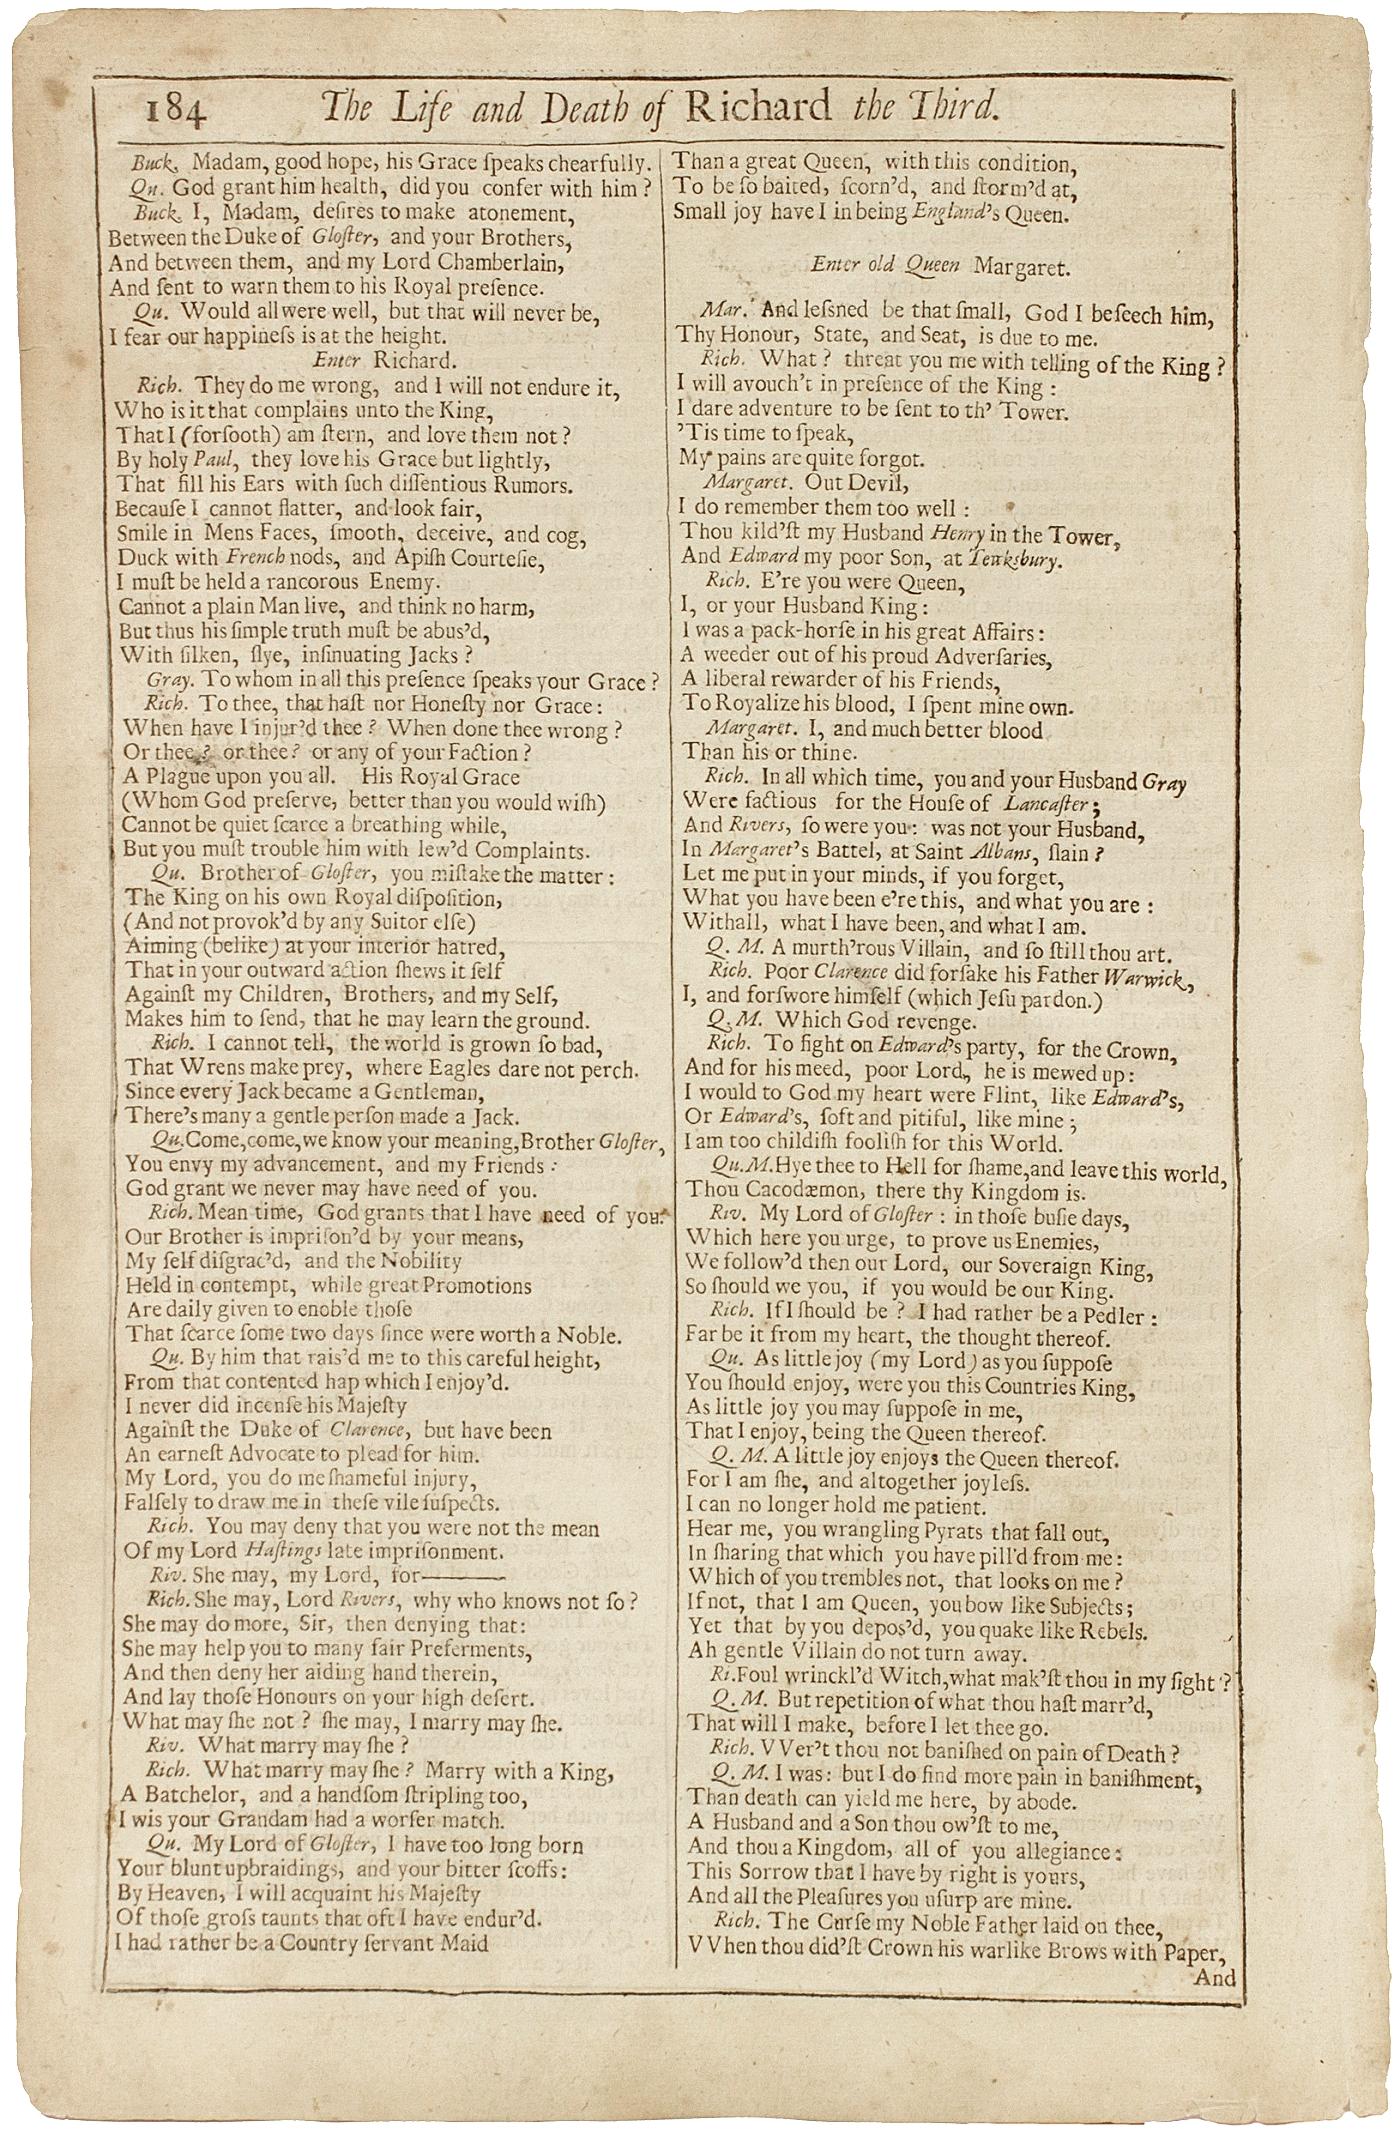 184 The Life and Death of Richard the Third.
Buck. Madam, good hope, his Grace ſpeaks chearfully.
Qu. God grant him health, did you confer with him?
Buck. I, Madam, deſires to make atonement,
Between the Duke of Gloſter, and your Brothers,
And between them, and my Lord Chamberlain,
And ſent to warn them to his Royal preſence.
Qu. Would all were well, but that will never be,
I fear our happineſs is at the height.
Enter Richard.
Rich. They do me wrong, and I will not endure it,
Who is it that complains unto the King,
That I (forſooth) am ſtern, and love them not?
By holy Paul, they love his Grace but lightly,
That fill his Ears with ſuch diſſentious Rumors.
Becauſe I cannot flatter, and look fair,
Smile in Mens Faces, ſmooth, deceive, and cog,
Duck with French nods, and Apiſh Courteſie,
I muſt be held a rancorous Enemy.
Cannot a plain Man live, and think no harm,
But thus his ſimple truth muſt be abus'd,
With ſilken, ſlye, inſinuating Jacks?
Gray. To whom in all this preſence ſpeaks your Grace?
Rich. To thee, that haſt nor Honeſty nor Grace:
When have I injur'd thee? When done thee wrong?
Or thee? or thee? or any of your Faction?
A Plague upon you all. His Royal Grace
(Whom God preſerve, better than you would wiſh)
Cannot be quiet ſcarce a breathing while,
But you muſt trouble him with lew'd Complaints.
Qu. Brother of Gloſter, you miſtake the matter:
The King on his own Royal diſpoſition,
(And not provok'd by any Suitor elſe)
Aiming (belike) at your interior hatred,
That in your outward action ſhews it ſelf
Againſt my Children, Brothers, and my Self,
Makes him to ſend, that he may learn the ground.
Rich. I cannot tell, the world is grown ſo bad,
That Wrens make prey, where Eagles dare not perch.
Since every Jack became a Gentleman,
There's many a gentle perſon made a Jack.
Qu. Come, come, we know your meaning, Brother Gloſter,
You envy my advancement, and my Friends:
God grant we never may have need of you.
Rich. Mean time, God grants that I have need of you.
Our Brother is impriſon'd by your means,
My ſelf diſgrac'd, and the Nobility
Held in contempt, while great Promotions
Are daily given to enoble thoſe
That ſcarce ſome two days ſince were worth a Noble.
Qu. By him that rais'd me to this careful height,
From that contented hap which I enjoy'd.
I never did incenſe his Majeſty
Againſt the Duke of Clarence, but have been
An earneſt Advocate to plead for him.
My Lord, you do me ſhameful injury,
Falſely to draw me in theſe vile ſuſpects.
Rich. You may deny that you were not the mean
Of my Lord Haſtings late impriſonment.
Riv. She may, my Lord, for———
Rich. She may, Lord Rivers, why who knows not ſo?
She may do more, Sir, then denying that:
She may help you to many fair Preferments,
And then deny her aiding hand therein,
And lay thoſe Honours on your high deſert.
What may ſhe not? ſhe may, I marry may ſhe.
Riv. What marry may ſhe?
Rich. What marry may ſhe? Marry with a King,
A Batchelor, and a handſom ſtripling too,
I wis your Grandam had a worſer match.
Qu. My Lord of Gloſter, I have too long born
Your blunt upbraidings, and your bitter ſcoffs:
By Heaven, I will acquaint his Majeſty
Of thoſe groſs taunts that oft I have endur'd.
I had rather be a Country ſervant Maid
Than a great Queen, with this condition,
To be ſo baited, ſcorn'd, and ſtorm'd at,
Small joy have I in being England's Queen.
Enter old Queen Margaret.
Mar. And leſsned be that ſmall, God I beſeech him,
Thy Honour, State, and Seat, is due to me.
Rich. What? threat you me with telling of the King?
I will avouch't in preſence of the King:
I dare adventure to be ſent to th' Tower.
'Tis time to ſpeak,
My pains are quite forgot.
Margaret. Out Devil,
I do remember them too well:
Thou kild'ſt my Husband Henry in the Tower,
And Edward my poor Son, at Tewksbury.
Rich. E're you were Queen,
I, or your Husband King:
I was a pack-horſe in his great Affairs:
A weeder out of his proud Adverſaries,
A liberal rewarder of his Friends,
To Royalize his blood, I ſpent mine own.
Margaret. I, and much better blood
Than his or thine.
Rich. In all which time, you and your Husband Gray
Were factious for the Houſe of Lancaſter;
And Rivers, ſo were you: was not your Husband,
In Margaret's Battel, at Saint Albans, ſlain?
Let me put in your minds, if you forget,
What you have been e're this, and what you are:
Withall, what I have been, and what I am.
Q. M. A murth'rous Villain, and ſo ſtill thou art.
Rich. Poor Clarence did forſake his Father Warwick,
I, and forſwore himſelf (which Jeſu pardon.)
Q. M. Which God revenge.
Rich. To fight on Edward's party, for the Crown,
And for his meed, poor Lord, he is mewed up:
I would to God my heart were Flint, like Edward's,
Or Edward's, ſoft and pitiful, like mine;
I am too childiſh fooliſh for this World.
Qu. M. Hye thee to Hell for ſhame, and leave this world,
Thou Cacodæmon, there thy Kingdom is.
Riv. My Lord of Gloſter: in thoſe buſie days,
Which here you urge, to prove us Enemies,
We follow'd then our Lord, our Soveraign King,
So ſhould we you, if you would be our King.
Rich. If I ſhould be? I had rather be a Pedler:
Far be it from my heart, the thought thereof.
Qu. As little joy (my Lord) as you ſuppoſe
You ſhould enjoy, were you this Countries King,
As little joy you may ſuppoſe in me,
That I enjoy, being the Queen thereof.
Q. M. A little joy enjoys the Queen thereof.
For I am ſhe, and altogether joyleſs.
I can no longer hold me patient.
Hear me, you wrangling Pyrats that fall out,
In ſharing that which you have pill'd from me:
Which of you trembles not, that looks on me?
If not, that I am Queen, you bow like Subjects;
Yet that by you depos'd, you quake like Rebels.
Ah gentle Villain do not turn away.
Ri. Foul wrinckl'd Witch, what mak'ſt thou in my ſight?
Q. M. But repetition of what thou haſt marr'd,
That will I make, before I let thee go.
Rich. VVer't thou not baniſhed on pain of Death?
Q. M. I was: but I do find more pain in baniſhment,
Than death can yield me here, by abode.
A Husband and a Son thou ow'ſt to me,
And thou a Kingdom, all of you allegiance:
This Sorrow that I have by right is yours,
And all the Pleaſures you uſurp are mine.
Rich. The Curſe my Noble Father laid on thee,
VVhen thou did'ſt Crown his warlike Brows with Paper,
And